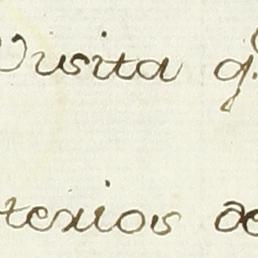 Visita q.
terios de